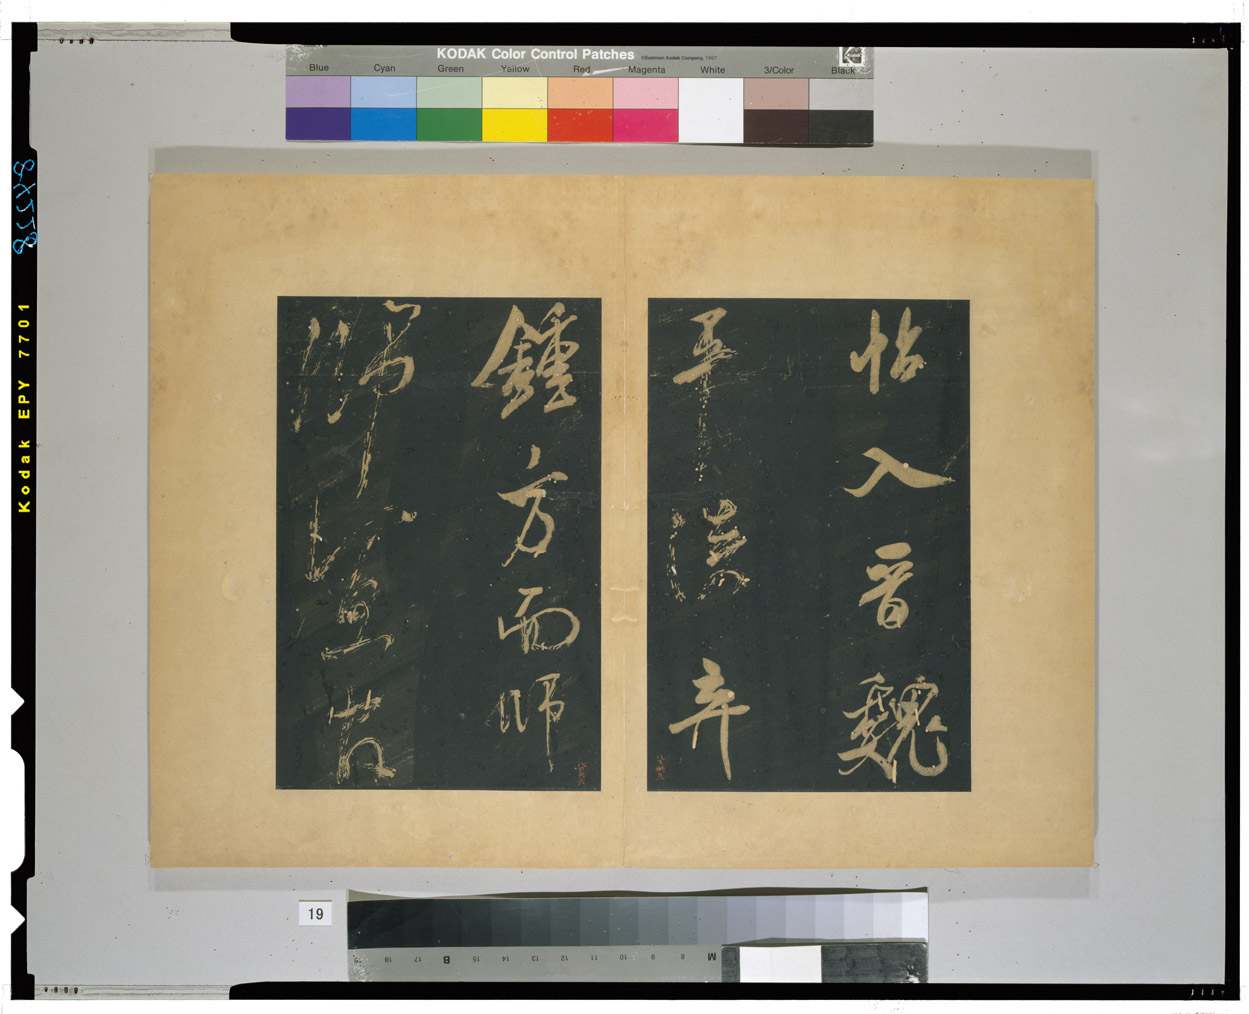 KODAK Color Control Patches
©Eastman Kodak Company, 1997
Blue Cyan Green Yellow Red Magenta White 3/Color Black
Kodak EPY 7701
帖入晋魏
平淡弃
鍾方而師
師宜官
19
19 18 17 B 15 14 13 12 11 10 9 8 M